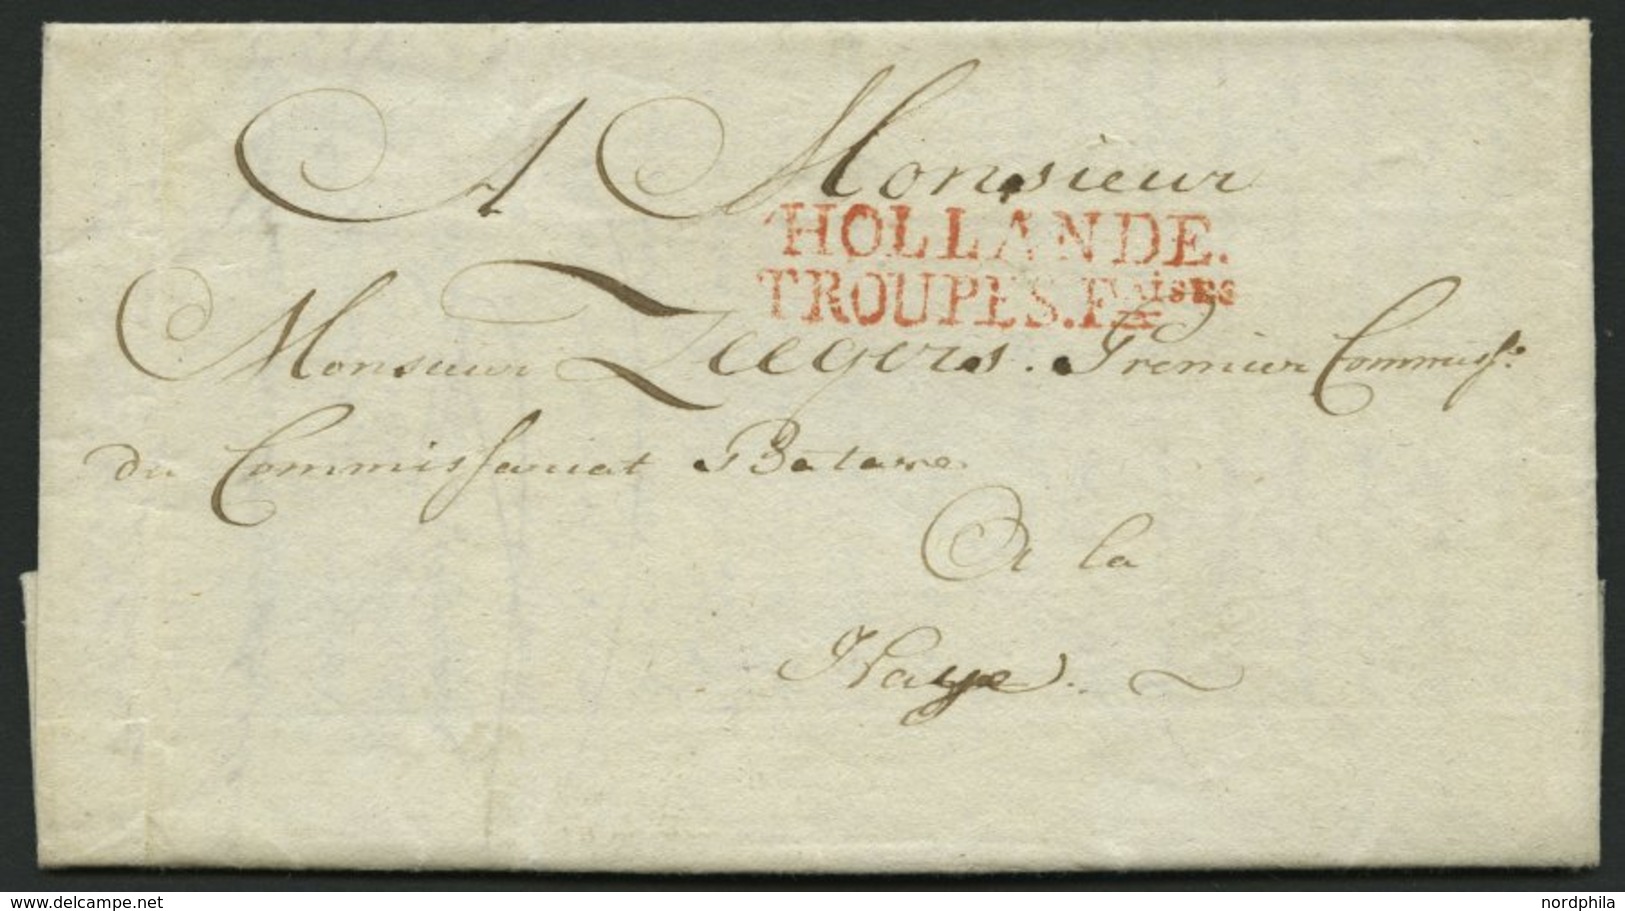 A Monsieur
HOLLANDE.
TROUPES.Fçaises
Monsieur Zeegers. Premier Commiss:
du Commissariat Batave
A la
Haye.
www.delcampe.net
nordphila